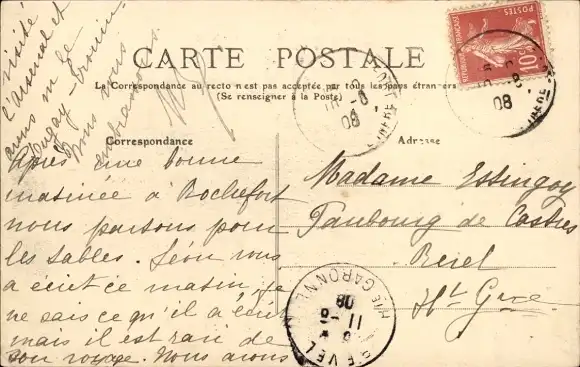 CARTE POSTALE
La Correspondance au recto n'est pas acceptée par tous les pays étrangers
(Se renseigner à la Poste)
Correspondance
Après une bonne
matinée à Rochefort
nous partons pour
les Sables. Léon vous
a écrit ce matin, je
ne sais ce qu'il a écrit
mais il est ravi de
son voyage. Nous avons
visité
l'arsenal et
avons vu le
Nous vous
embrassons
Adresse
Madame Essingoy
Faubourg de Castres
Revel
Ht Gne
POSTES
10
REPUBLIQUE FRANÇAISE
08
08
REVEL
HTE GARONNE
11-8
08